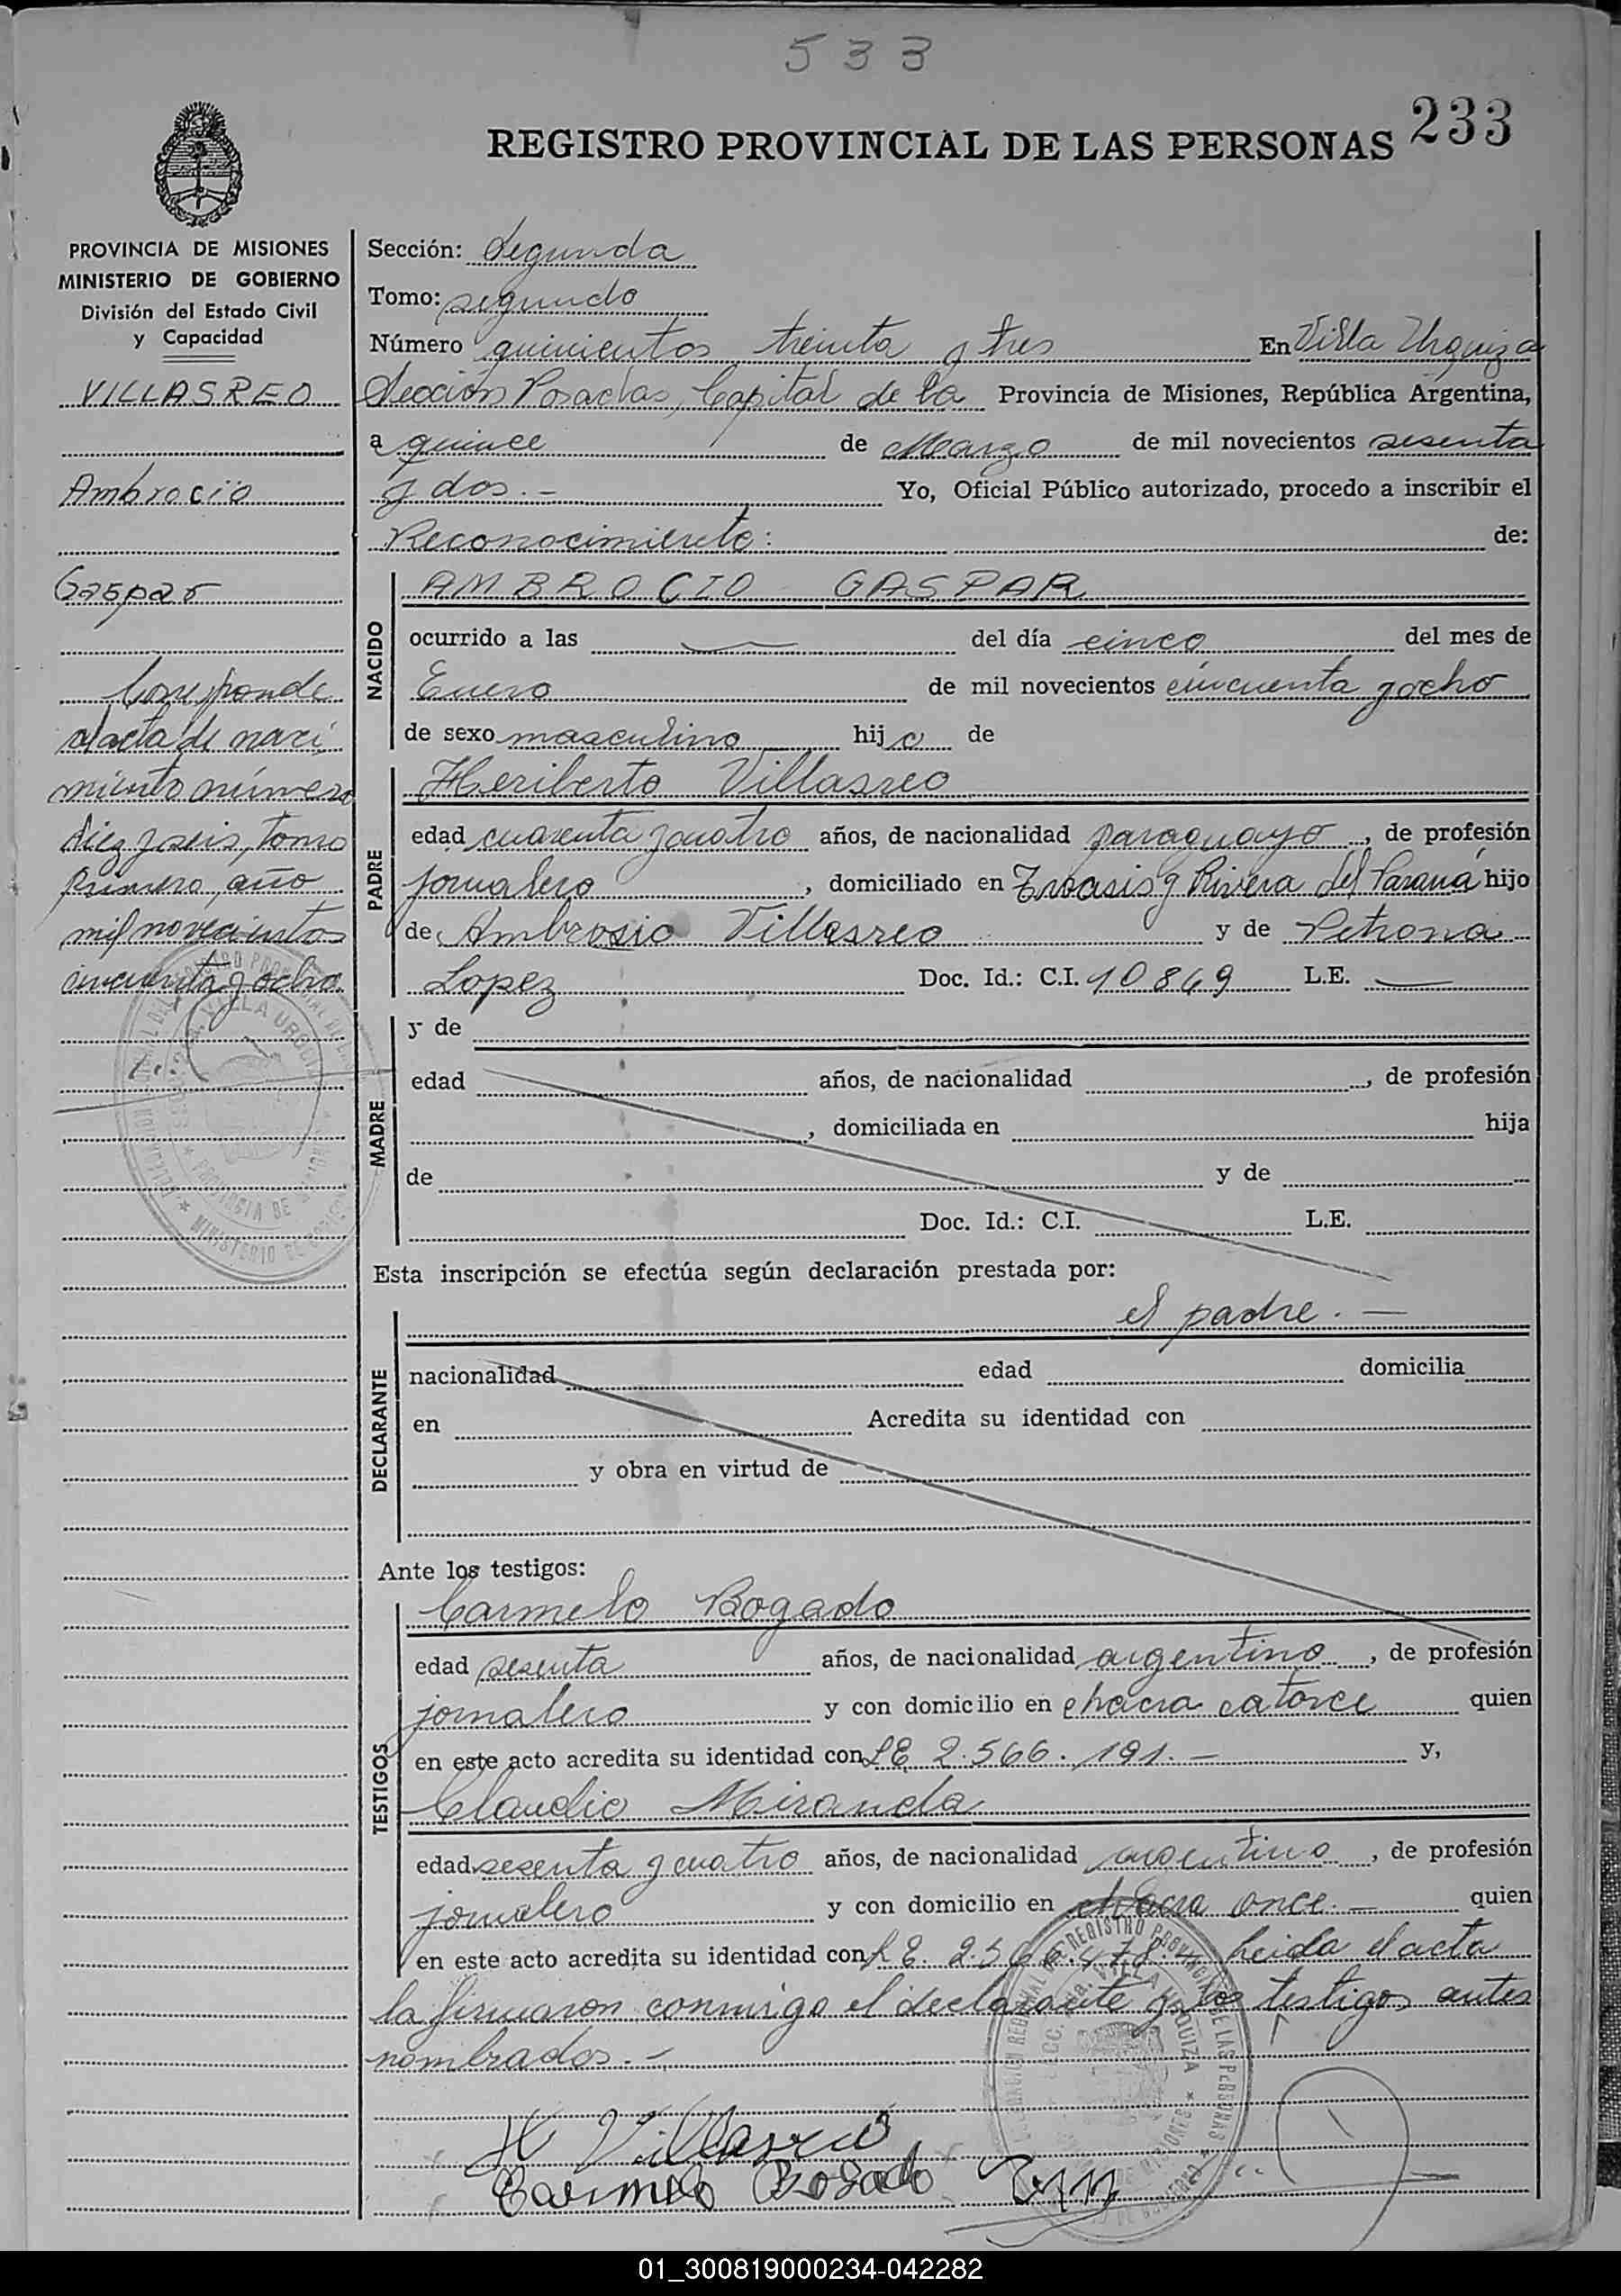 533
REGISTRO PROVINCIAL DE LAS PERSONAS 233
PROVINCIA DE MISIONES
MINISTERIO DE GOBIERNO
División del Estado Civil
y Capacidad
VILLASREO
Ambrocio
Gaspar
Corresponde
al acta de naci
miento número
diez y seis, tomo
Primero, año
mil novecientos
cincuenta y ocho
Sección: Segunda
Tomo: segundo
Número quinientos treinta y tres En Villa Urquiza
Sección Posadas, Capital de la Provincia de Misiones, República Argentina,
a quince de Marzo de mil novecientos sesenta
y dos.- Yo, Oficial Público autorizado, procedo a inscribir el
Reconocimiento: de:
NACIDO
AMBROCIO GASPAR
ocurrido a las — del día cinco del mes de
Enero de mil novecientos cincuenta y ocho
de sexo masculino hijo de
PADRE
Heriberto Villasreo
edad cuarenta y cuatro años, de nacionalidad paraguayo, de profesión
jornalero, domiciliado en y Rivera del Paraná hijo
de Ambrosio Villasreo y de Petrona
Lopez Doc. Id.: C.I. 10869 L.E. —
MADRE
y de
edad años, de nacionalidad , de profesión
, domiciliada en hija
de y de
Doc. Id.: C.I. L.E.
Esta inscripción se efectúa según declaración prestada por:
el padre. —
DECLARANTE
nacionalidad edad domicilia
en Acredita su identidad con
y obra en virtud de
Ante los testigos:
TESTIGOS
Carmelo Bogado
edad sesenta años, de nacionalidad argentino, de profesión
jornalero y con domicilio en chacra catorce quien
en este acto acredita su identidad con LE 2.566.191.- y,
Claudio Miranda
edad sesenta y cuatro años, de nacionalidad argentino, de profesión
jornalero y con domicilio en chacra once.- quien
en este acto acredita su identidad con L E. Leida el acta
la firmaron conmigo el declarante y los testigos antes
nombrados.-
H Villasreo
Carmelo Bogado
01_300819000234-042282